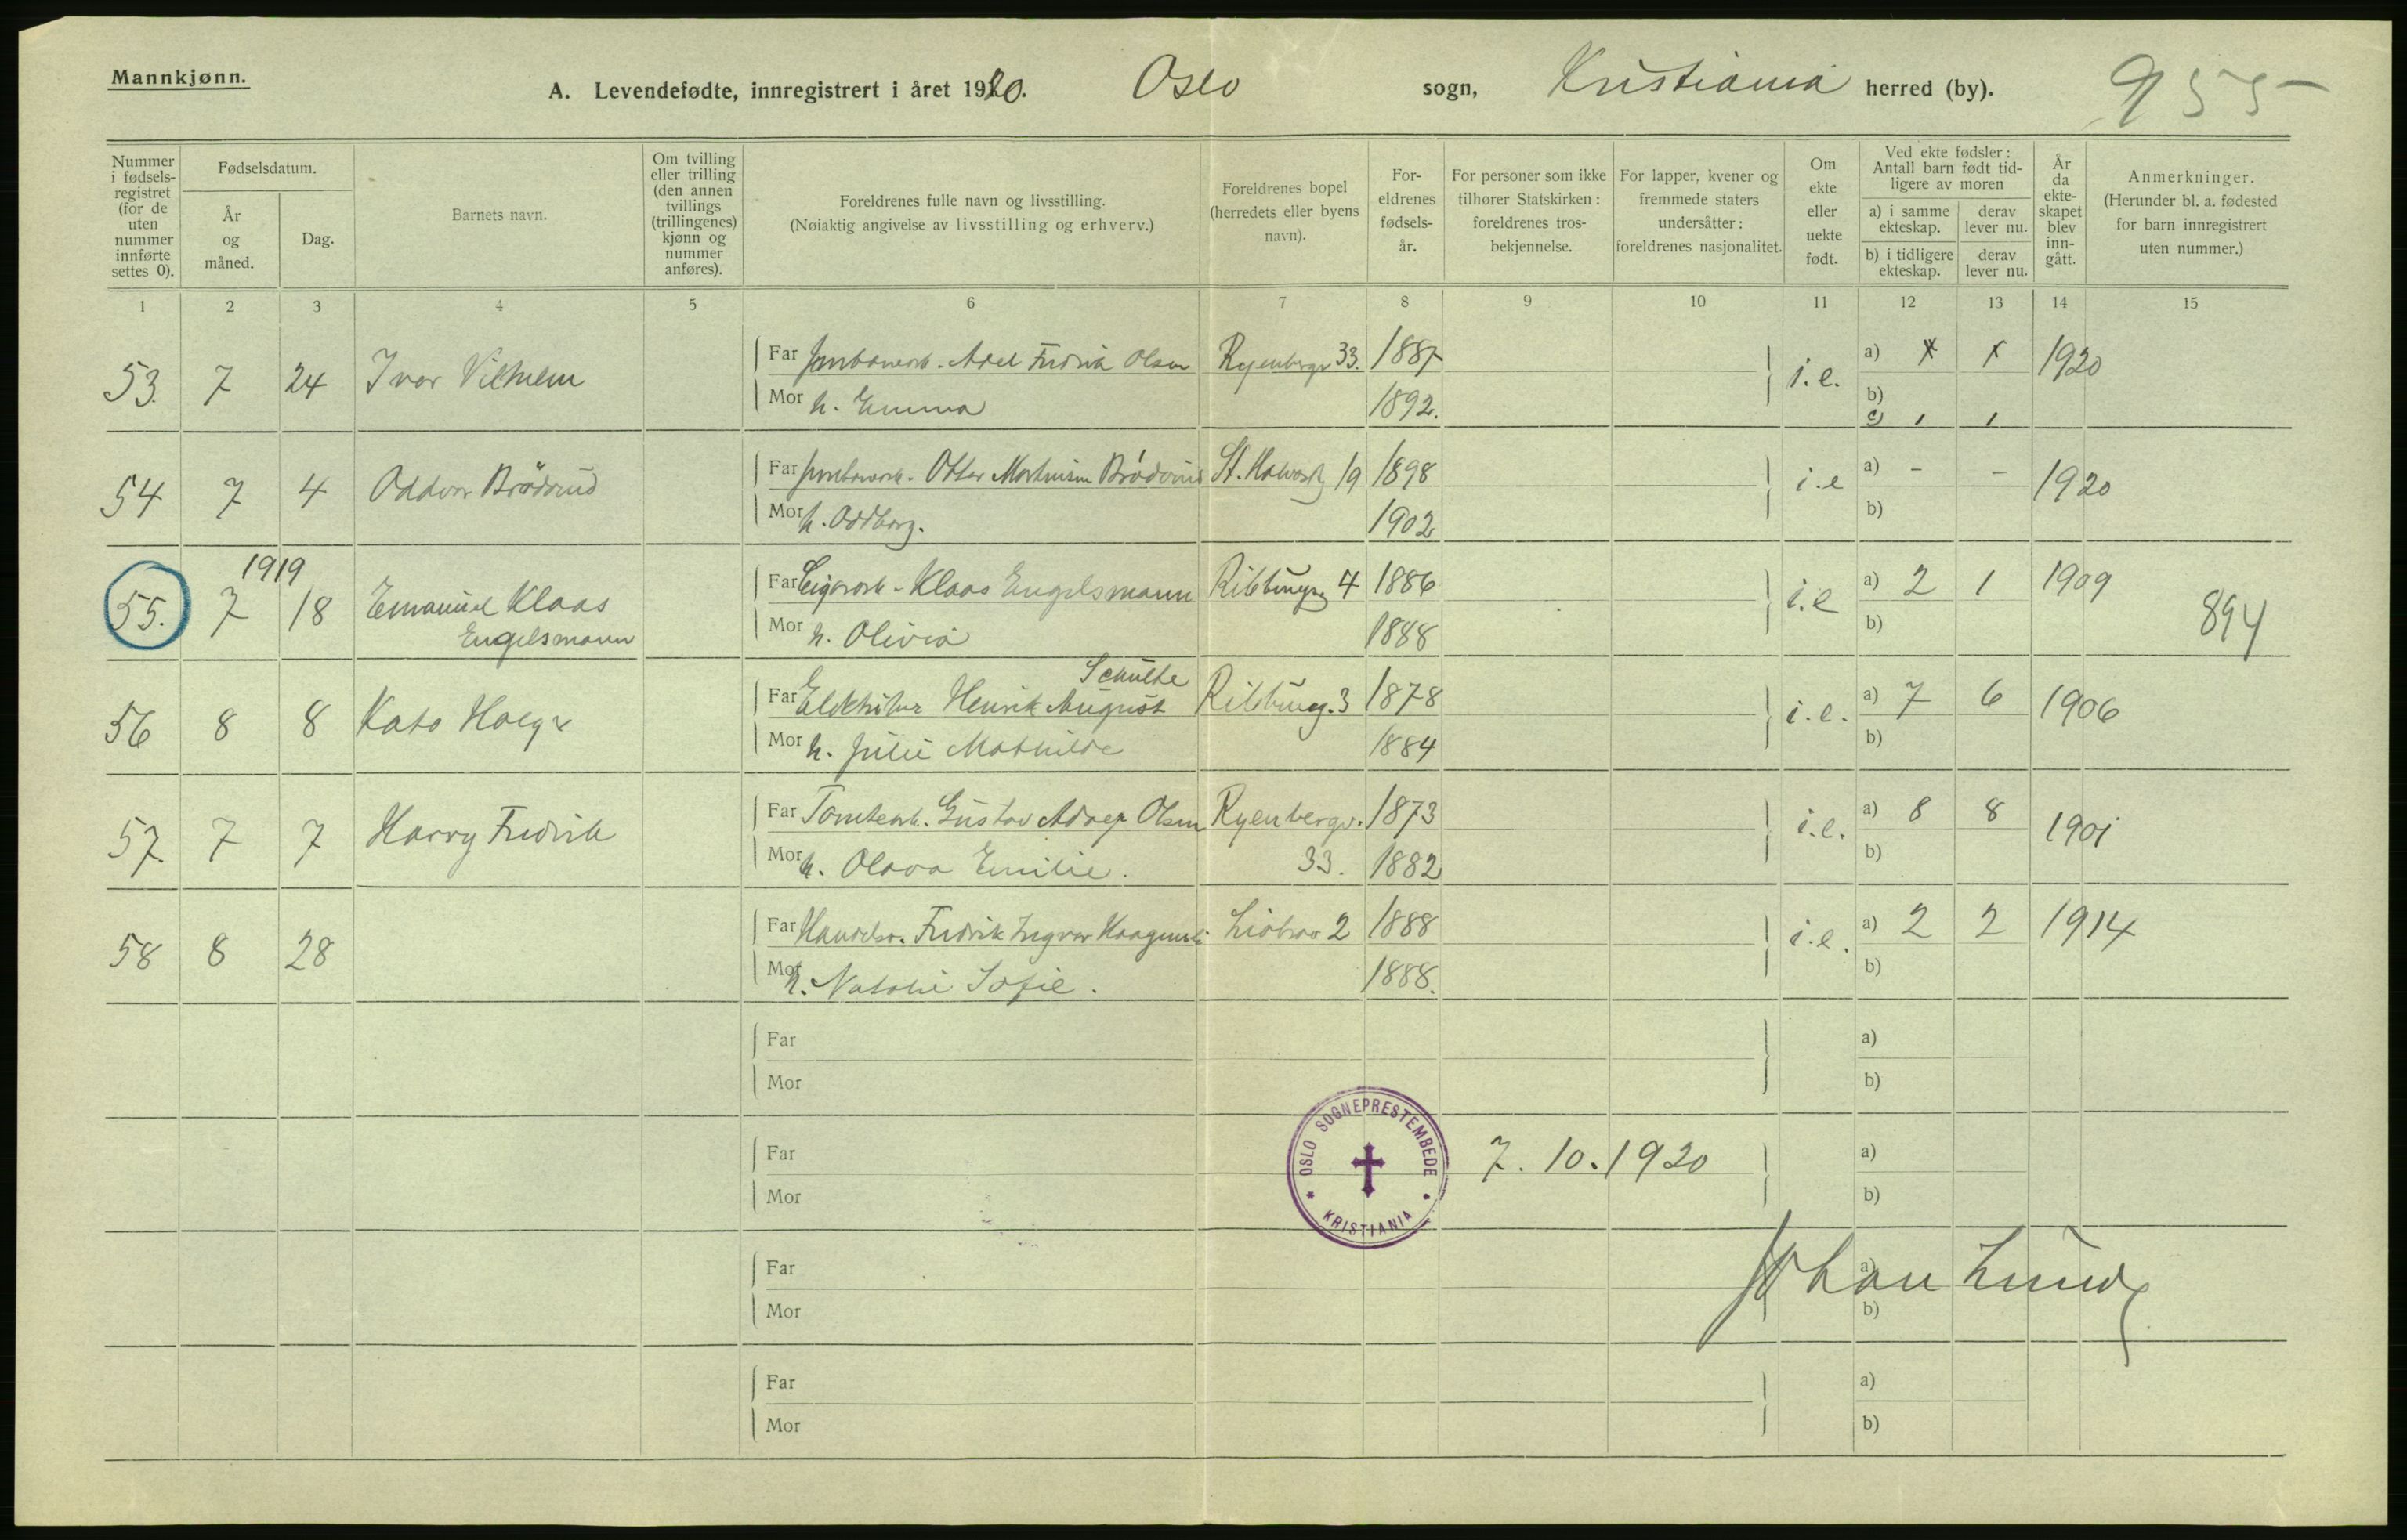 Mannkjønn.
A. Levendefødte, innregistrert i året 1920. Oslo sogn, Kristiania herred (by). 955
Nummer i fødselsregistret (for de uten nummer innførte settes 0).
Fødselsdatum.
År og måned.
Dag.
Barnets navn.
Om tvilling eller trilling (den annen tvillings (trillingenes) kjønn og nummer anføres).
Foreldrenes fulle navn og livsstilling.
(Nøiaktig angivelse av livsstilling og erhverv.)
Foreldrenes bopel (herredets eller byens navn).
Foreldrenes fødselsår.
For personer som ikke tilhører Statskirken: foreldrenes trosbekjennelse.
For lapper, kvener og fremmede staters undersåtter: foreldrenes nasjonalitet.
Om ekte eller uekte født.
Ved ekte fødsler: Antall barn født tidligere av moren
a) i samme ekteskap. derav lever nu.
b) i tidligere ekteskap. derav lever nu.
År da ekteskapet blev inngått.
Anmerkninger.
(Herunder bl. a. fødested for barn innregistrert uten nummer.)
1 2 3 4 5 6 7 8 9 10 11 12 13 14 15
53. 7 24 Ivar Vilhelm Far Axel Fredrik Olsen Ryenbergv 33. 1887 i.e. a) 1920
Mor h. Emma 1892. b)
c) 1 1
54 7 4 Oddvar Brödrud Far Brödrud St. Halvards 19 1898 i.e a) - - 1920
Mor h. Oddborg. 1902 b)
1919
55. 7 18 Emanuel Klaas Far Klaas Engelsmann 4 1886 i.e a) 2 1 1909
Engelsmann Mor h. Olivia 1888 b) 894
Schulte
56 8 8 Kato Far Henrik August 3 1878 i.e. a) 7 6 1906
Mor h. Julie Mathilde 1884 b)
57. 7 7 Harry Fredrik Far Tomtearb. Gustav Adolf Olsen Ryenbergv. 1873 i.e. a) 8 8 1901
Mor h. Olava Emilie. 33. 1882 b)
58 8 28 Far Fredrik Ingvar 2 1888 i.e. a) 2 2 1914
Mor h. Natalie Sofie. 1888. b)
Far a)
Mor b)
Far OSLO SOGNEPRESTEMBEDE * KRISTIANIA 7. 10. 1920 a)
Mor b)
Far a)
Johan Lund
Mor b)
Far a)
Mor b)